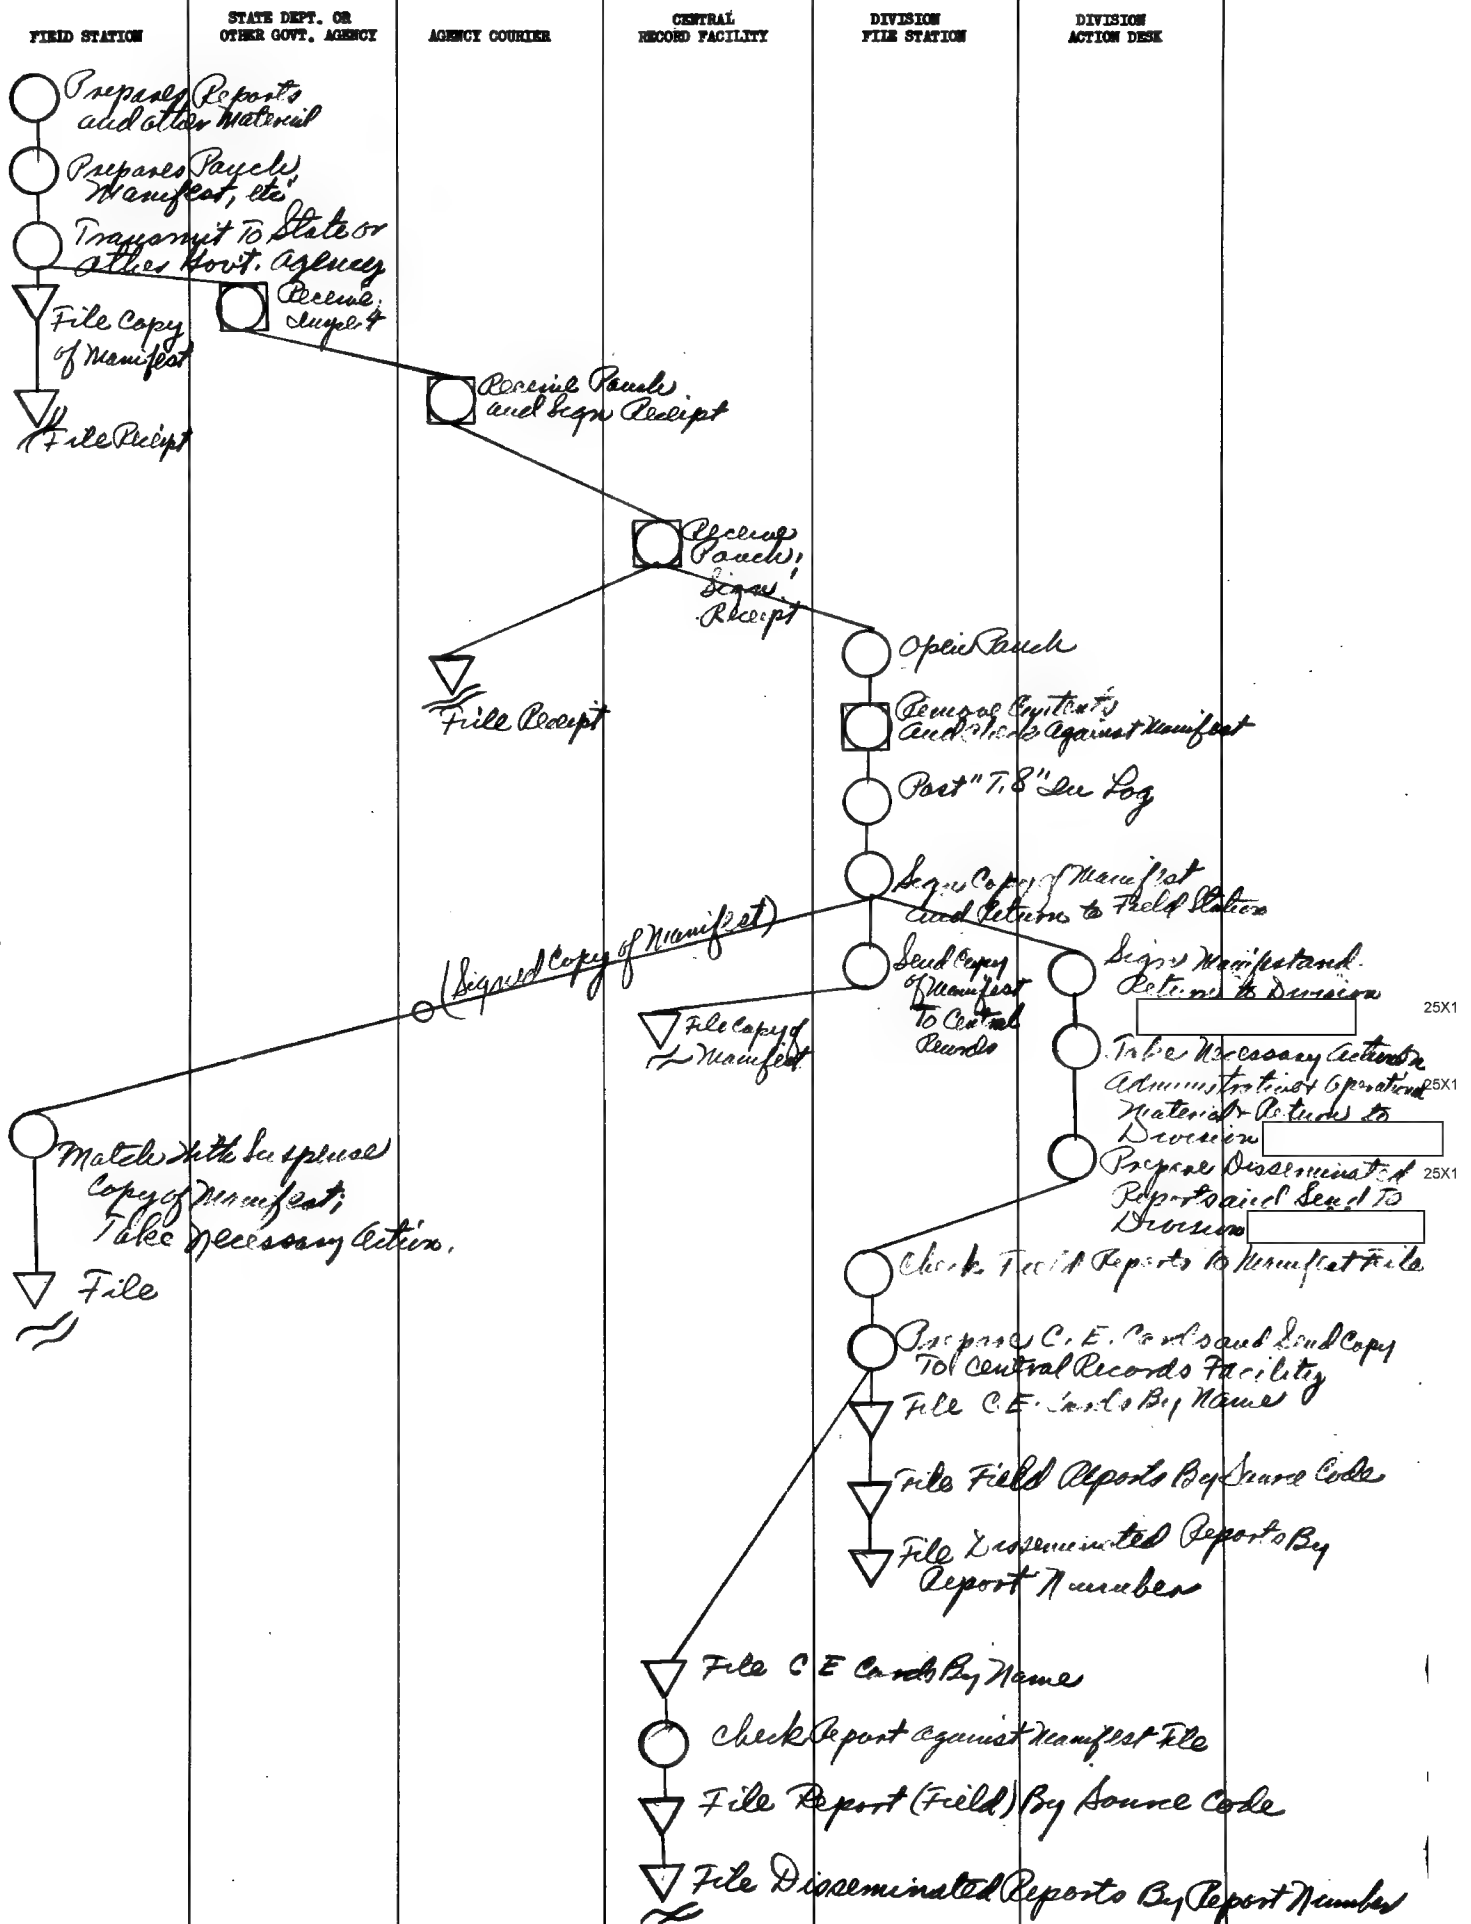 FIELD STATION
STATE DEPT. OR
OTHER GOVT. AGENCY
AGENCY COURIER
CENTRAL
RECORD FACILITY
DIVISION
FILE STATION
DIVISION
ACTION DESK
Prepares Reports
and other Material
Prepares Pouch,
Manifest, etc
Transmit To State or
other Gov't. Agency
Receive
File Copy
of Manifest
File Receipt
Receive Pouch
and Sign Receipt
Receive
Pouch,
Sign
Receipt
File Receipt
Open Pouch
Remove Contents
and check Against Manifest
Post "T.8" In Log
Sign Copy of Manifest
and Return to Field Station
(Signed Copy of Manifest)
Send Copy
of Manifest
To Central
Records
File Copy of
Manifest
Sign Manifest and
Return to Division
25X1
Take Necessary Action on
Administrative & Operational
25X1
Material & Return to
Division
Prepare Disseminated
25X1
Reports and Send To
Division
Match with Suspense
Copy of Manifest;
Take Necessary Action.
File
Check Field Reports to Manifest File
Prepare C.E. Cards and Send Copy
To Central Records Facility
File C.E. Cards By Name
File Field Reports By Source Code
File Disseminated Reports By
Report Number
File C E Cards By Name
Check Report against Manifest File
File Report (Field) By Source Code
File Disseminated Reports By Report Number